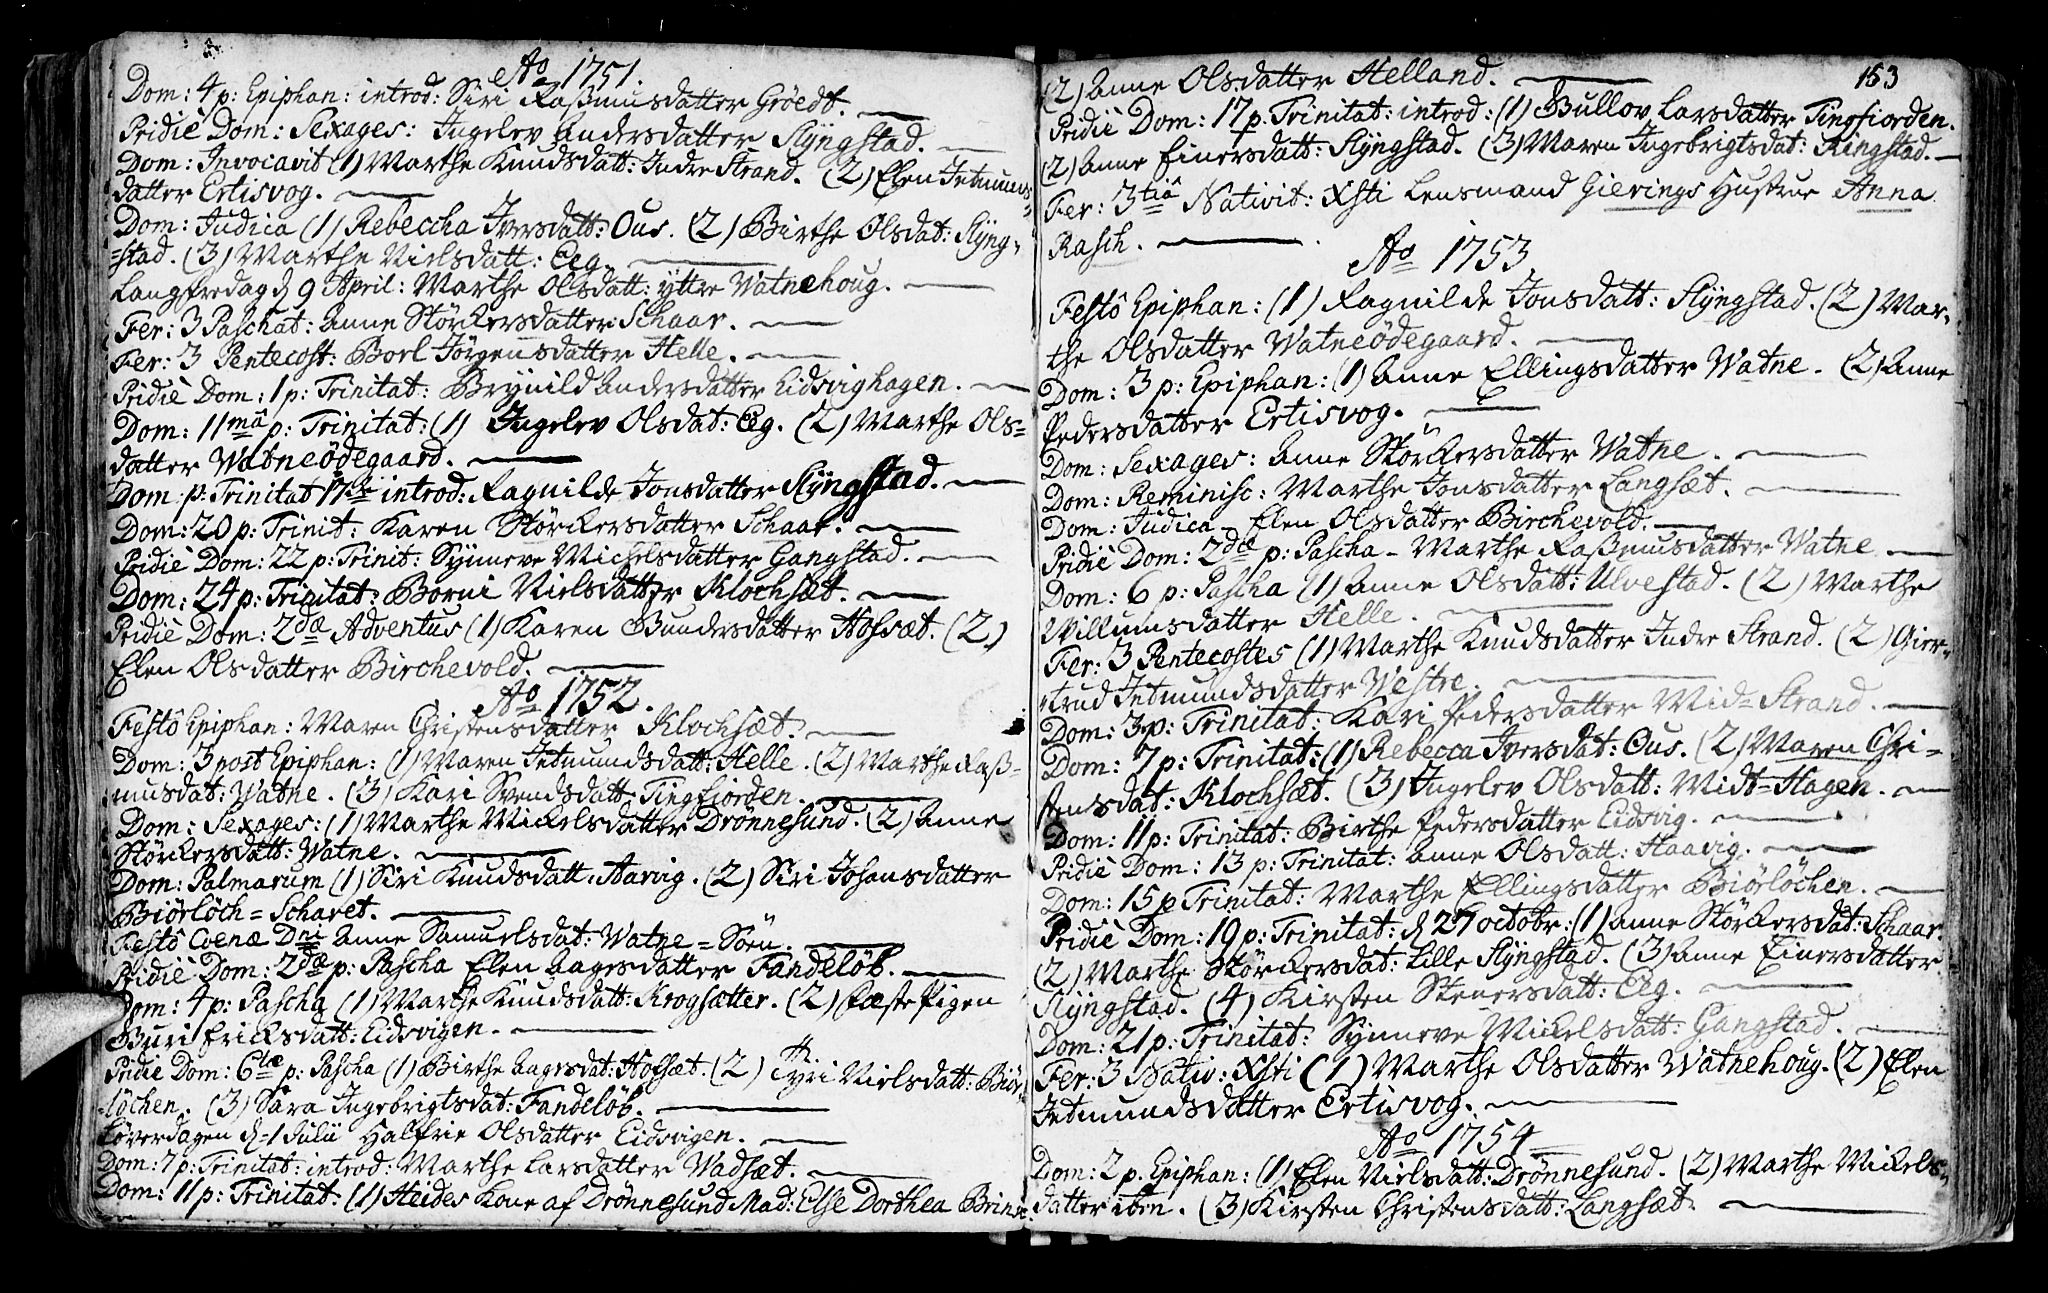 Ao 1751.
Dom: 4 p: Epiphan: introd: Siri Raßmusdatter Gröedt.
Pridiè Dom: Sexages: Ingelev Andersdatter Slÿngstad.
Dom: Invocavit (1) Marthe Knudsdatt: Indre Strand. (2) Elen Jetmunds-
datter Ertisvog.
Dom: Judica (1) Rebeccha Iversdatt: Ous. (2) Birthe Olsdat: Slÿng-
=stad. (3) Marthe Nielsdatt: Eeg.
Langfredag d 9 April: Marthe Olsdatt: ÿttre Watnehoug.
Fer: 3 Paschat: Anne Störkersdatter Schaar.
Fer: 3 Pentecost: Borl Jörgensdatter Helle.
Pridiè Dom: 1 p: Trinitat: Brynild Andersdatter Eidsvighagen.
Dom: 11mâ p: Trinitat: (1) Ingelev Olsdat: Eeg. (2) Marthe Ols=
datter Watneödegaard.
Dom: p: Trinitat 17 introd: Ragnilde Jonsdatter Slÿngstad.
Dom: 20 p: Trinit: Karen Störkersdatter Schaar.
Pridiè Dom: 22 p: Trinit: Sÿnneve Michelsdatter Gangstad.
Dom: 24 p: Trinitat: Borni Nielsdatter Klochsæt.
Pridiè Dom: 2dæ Adventus (1) Karen Gundersdatter Hofsæt. (2)
Elen Olsdatter Birchevold.
Ao 1752.
Festô Epiphan: Maren Christensdatter Klochsæt.
Dom: 3 post Epiphan: (1) Maren Jetmundsdatt: Helle. (2) Marthe Raß=
musdat: Watne. (3) Kari Svendsdatt: Tingfjorden.
Dom: Sexages: (1) Marthe Mickelsdatter Drönnesund. (2) Anne
Störkersdatt: Watne.
Dom: Palmarum (1) Siri Knudsdatt: Aarvig. (2) Siri Johansdatter
Biörlöch=Scharet.
Festô Coenæ Dni Anne Samuelsdat: Watne=Söen.
Pridiè Dom: 2dæ p: Pascha Elen Aagesdatter Fandelöb.
Dom: 4 p: Pascha (1) Marthe Knudsdatt: Krogsætter. (2) Fæste Pigen
Guri Ericksdatt: Eidsvigen.
Pridiè Dom: 6tæ p: Pascha (1) Birthe Aagesdat: Hofsæt. (2) Tyri Nielsdatt: Biör-
löchen. (3) Sara Ingebrigtsdat: Fandelöb.
Löverdagen d 1 Julii Halfrie Olsdatter Eidsvigen.
Dom: 7 p: Trinitat: introd: Marthe Larsdatter Wadsæt.
Dom: 11 p: Trinitat: (1) Heides Kone af Drönnesund Mad: Else Dorthea
153
(2) Anne Olsdatter Helland.
Pridiè Dom: 17 p: Trinitat: introd: (1) Gullov Larsdatter Tingfiorden.
(2) Anne Einersdatt: Slÿngstad. (3) Maren Ingebrigtsdat: Ringstad.
Fer: 3tiâ Nativit: Xsti Lensmand Gierings Hustrue Anna
Rasch.
Ao 1753
Festô Epiphan: (1) Ragnilde Jonsdatt: Slÿngstad. (2) Mar-
the Olsdatter Watneödegaard.
Dom: 3 p: Epiphan: (1) Anne Ellingsdatter Watne. (2) Anne
Pedersdatter Ertisvog.
Dom: Sexages: Anne Störkersdatter Watne.
Dom: Reminisc: Marthe Jonsdatter Langsæt.
Dom: Judica - Elen Olsdatter Birchevold.
Pridiè Dom: 2dæ p: Pascha - Marthe Raßmusdatter Watne
Dom: 6 p: Pascha (1) Anne Olsdatt: Ulvestad. (2) Marthe
Willumsdatter Helle.
Fer: 3 Pentecostes (1) Marthe Knudsdatter Indre Strand. (2) Gier-
trud Jetmundsdatter Westre.
Dom: 3 p: Trinitat: Kari Pedersdatter Mid=Strand.
Dom: 7 p: Trinitat: (1) Rebecca Iversdat: Ous. (2) Maren Chri=
stensdat: Klochsæt. (3) Ingelev Olsdatt: Midt=Hagen.
Dom: 11 p: Trinitat: Birthe Pedersdatter Eidsvig.
Pridiè Dom: 13 p: Trinitat: Anne Olsdatt: Haavig.
Dom: 15 p Trinitat: Marthe Ellingsdatter Biörlöchen.
Pridiè Dom: 19 p: Trinitat: d 27 octobr: (1) Anne Störkersdat: Schaar.
(2) Marthe Störkersdat: Lille Slÿngstad. (3) Anne Einersdatter
Slÿngstad. (4) Kirsten Stenersdatt: Eeg.
Dom: 21 p: Trinitat: Sÿnneve Mickelsdatt: Gangstad.
Fer: 3 Nativ: Xsti (1) Marthe Olsdatter Watnehoug. (2) Elen
Jetmundsdatter Ertisvog.
Ao 1754
Dom: 2 p. Epiphan: (1) Elen Nielsdatt: Drönnesund. (2) Marthe Mickels-
datter iben. (3) Kirsten Christensdatt: Langsæt.